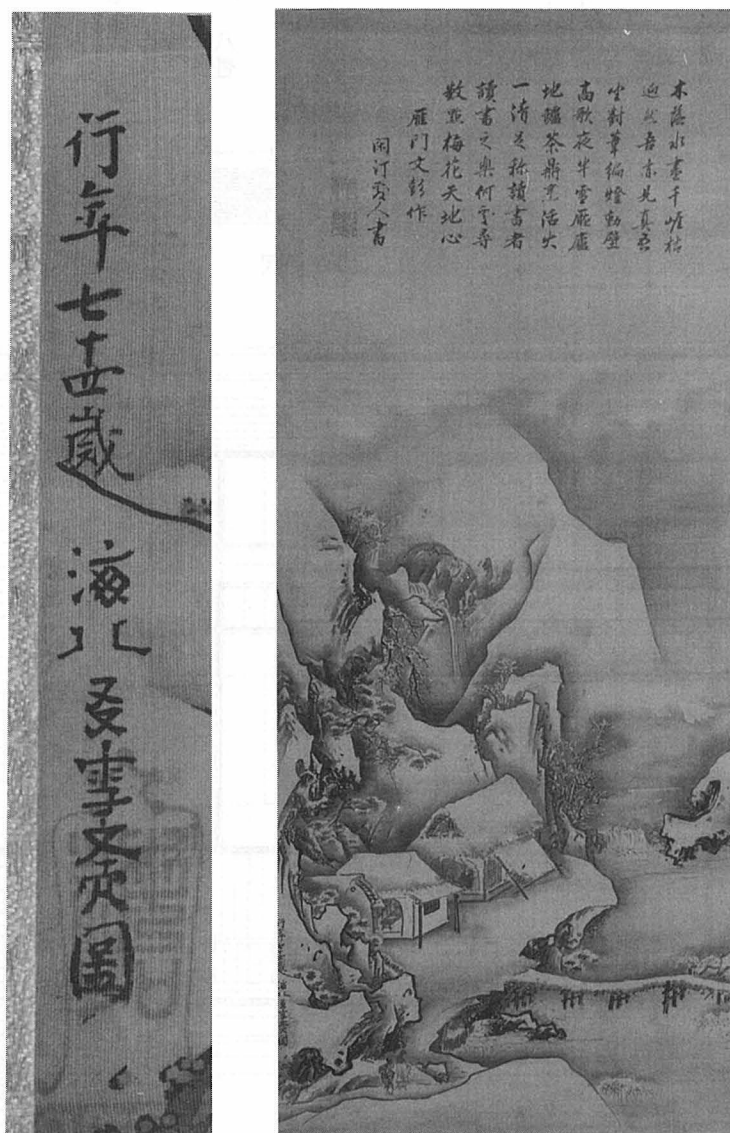 行年七十四歳 海北友雪斎圖
木落水盡千崖枯
迥然吾亦見真吾
坐對韋編燈動壁
高歌夜半雪壓廬
地罏茶鼎烹活火
一清足称讀書者
讀書之樂何處尋
數點梅花天地心
雁门文彭作
閑汀人書